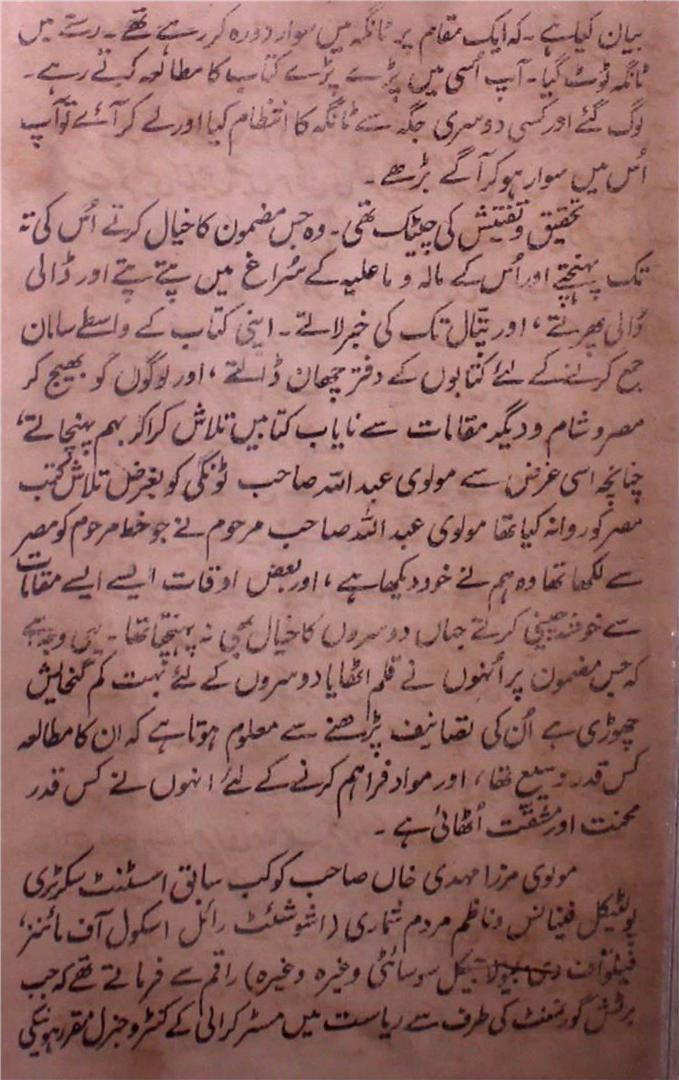 بیان کیا ہے ۔ کہ ایک مقام پر ٹانگہ میں سوار دورہ کر رہے تھے ۔ رستے میں
ٹانگہ ٹوٹ گیا ۔ آپ اُسی میں پڑے پڑے کتاب کا مطالعہ کرتے رہے ۔
لوگ گئے اور کسی دوسری جگہ سے ٹانگہ کا انتظام کیا اور لے کر آئے تو آپ
اُس میں سوار ہو کر آگے بڑھے ۔
تحقیق و تفتیش کی چیٹک تھی ۔ وہ جس مضمون کا خیال کرتے اُس کی تہ
تک پہنچتے اور اُس کے مالہ و ماعلیہ کے سُراغ میں پتے پتے اور ڈالی
ڈالی پھرتے ، اور پتال تک کی خبر لاتے ۔ اپنی کتاب کے واسطے سامان
جمع کرنے کے لئے کتابوں کے دفتر چھان ڈالتے ، اور لوگوں کو بھیج کر
مصر و شام و دیگر مقامات سے نایاب کتابیں تلاش کرا کر بہم پہنچاتے ،
چنانچہ اسی غرض سے مولوی عبد اللہ صاحب ٹونکی کو بغرض تلاش کتب
مصر کو روانہ کیا تھا مولوی عبد اللہ صاحب مرحوم نے جو خط مرحوم کو مصر
سے لکھا تھا وہ ہم نے خود دیکھا ہے ، اور بعض اوقات ایسے ایسے مقامات
سے خوشہ چینی کرتے جہاں دوسروں کا خیال بھی نہ پہنچتا تھا ۔ یہی وجہ ہے
کہ جس مضمون پر اُنہوں نے قلم اٹھایا دوسروں کے لئے بہت کم گنجایش
چھوڑی ہے اُن کی تصانیف پڑھنے سے معلوم ہوتا ہے کہ ان کا مطالعہ
کس قدر وسیع تھا ، اور مواد فراہم کرنے کے لئے انہوں نے کس قدر
محنت اور مشقت اُٹھائی ہے ۔
مولوی مرزا مہدی خاں صاحب کوکب سابق اسسٹنٹ سکرٹری
پولٹیکل فینانس و ناظم مردم شماری ( اشوشئٹ رائل اسکول آف مائنز ،
فیلو آف دی جیولاجیکل سوسائٹی وغیرہ وغیرہ ) راقم سے فرماتے تھے کہ جب
برٹش گورنمنٹ کی طرف سے ریاست میں مسٹر کرالی کے کنٹرو جنرل مقرر ہونیکی